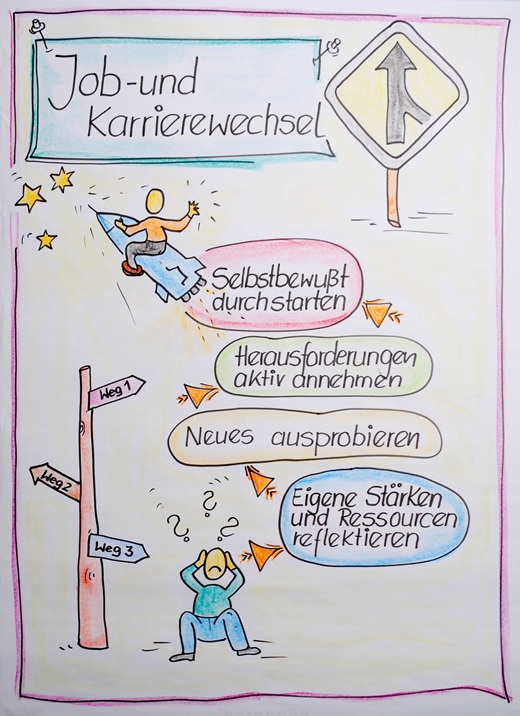 Job-und
Karrierewechsel
Selbstbewußt
durchstarten
Herausforderungen
aktiv annehmen
Weg 1
Neues ausprobieren
Weg 2
Eigene Stärken
und Ressourcen
reflektieren
Weg 3
???